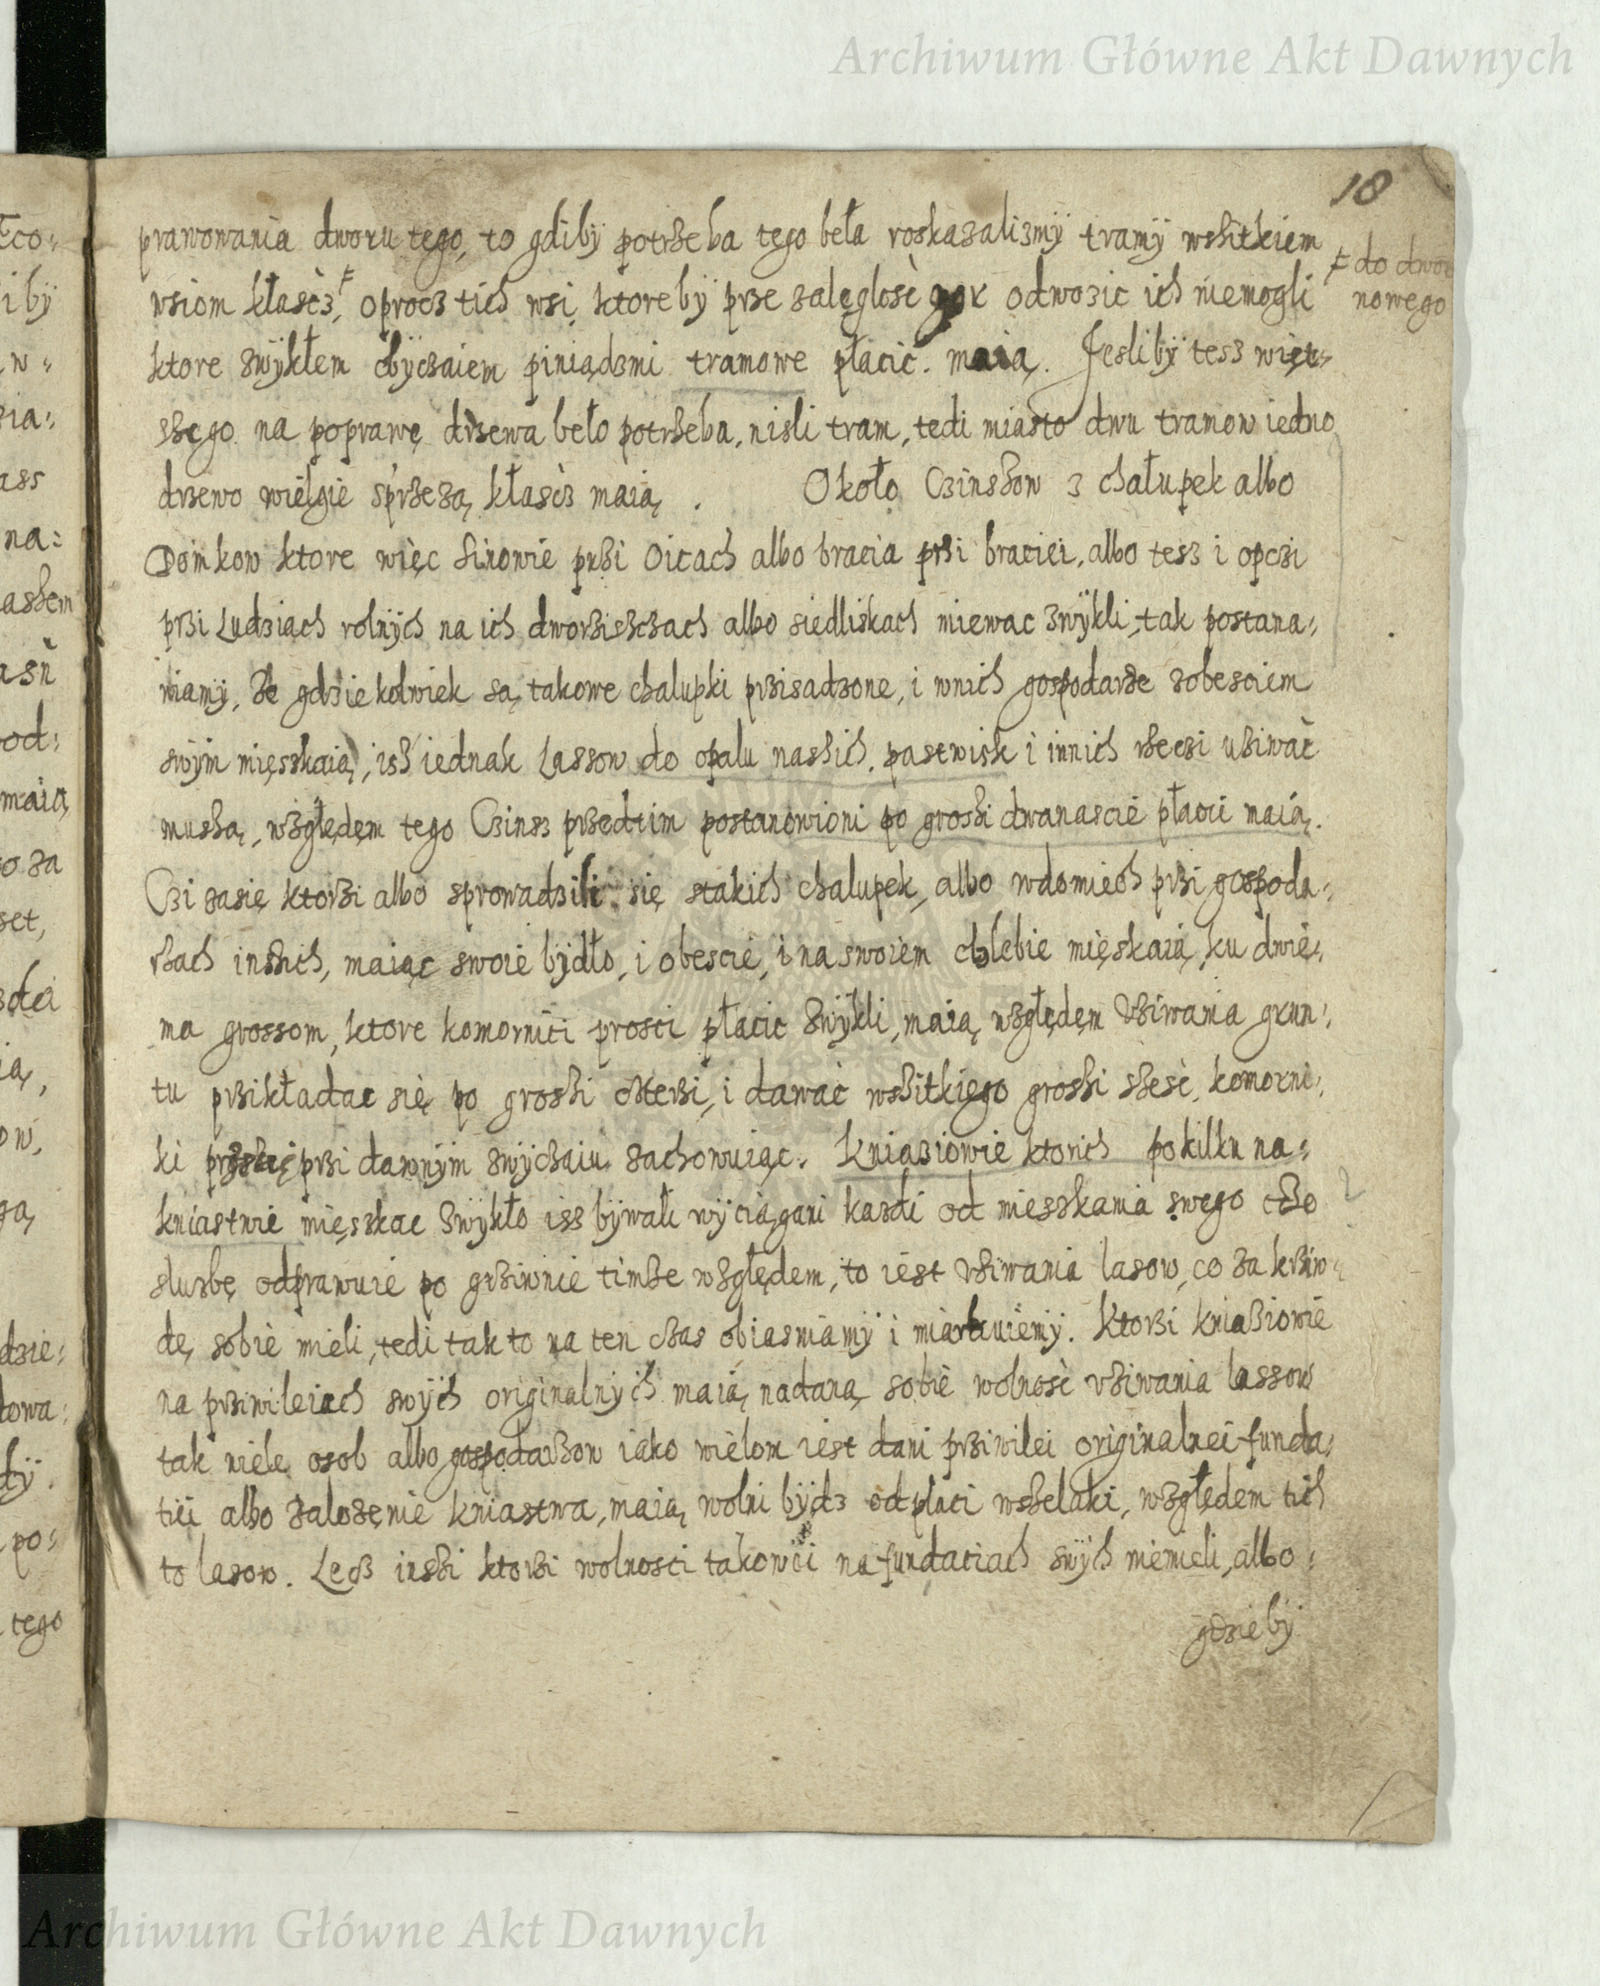 Archiwum Główne Akt Dawnych
18
prawowania dworu tego, to gdibÿ potrzeba tego beła roskazalizmÿ tramÿ wshitkiem
wsiom kłasèz, oprocz tich wsi, ktorebÿ prze zalęglosè gor odwozic ich niemogli
≠ do dwor
nowego
ktore zwÿkłem obÿczaiem piniądzmi tramowe płacic. maią. Jeslibÿ tesz więt=
szego na poprawę drzewa beło potrzeba, nisli tram, tedi miasto dwu tramow iedno
drzewo wielgie sprzezą kłasèz maią. Około Czinszow z chałupek albo
Domkow ktore więc sinowie przi Oicach albo bracia przi braciei, albo tesz i opczi
przi Ludziach rolnÿch na ich dworziszczach albo siedliskach miewac zwÿkli, tak postana=
wiamÿ, ze gdziekolwiek są takowe chalupki przisadzone, i wnich gospodarze zobesciem
swÿm mięszkaią, isz iednak Lassow do opalu naszich, pastwisk i innich rzeczi uziwać
muszą, względęm tego Czinsz przedtim postanowioni po groszi dwanascie płacic maią.
Czi zasię ktorzi albo sprowadzili się stakich chalupek, albo wdomiech przi gospoda=
rzach inszich, maiąc swoie bÿdło, i obescie, i na swoiem chlebie mięskaią, ku dwie=
ma grossom, ktore komornici prosci płacic zwÿkli, maią względęm Uziwania grun=
tu przikładac się po groszi czterzi, i dawać wszitkiego groszi szesć, komorni=
ki przi dawnÿm zwÿczaiu zachowuiąc. Kniaziowie ktorich pokilku na=
kniastwie mięszkac zwÿkło isz bÿwali wÿciągani kazdi od mieszkania swego czo
sluzbę odprawuie po grziwnie timze względem, to iest uziwania lasow, co za krziw=
dę sobie mieli, tedi tak to na ten czas obiasniamÿ i miarkuiemÿ. Ktorzi kniaziowie
na prziwileiach swÿch originalnÿch maią nadaną sobie wolnosć uziwania lassow
tak wiele osob albo gospodarzow iako wielom iest dani prziwilei originalnei funda=
tiei albo zalozęnie kniastwa, maią wolni bÿdz od placi wszelaki, względem tich
to lasow. Lecz inszi ktorzi wolnosci takowei na fundatiach swÿch niemieli, albo=
gdziebÿ
Archiwum Główne Akt Dawnych